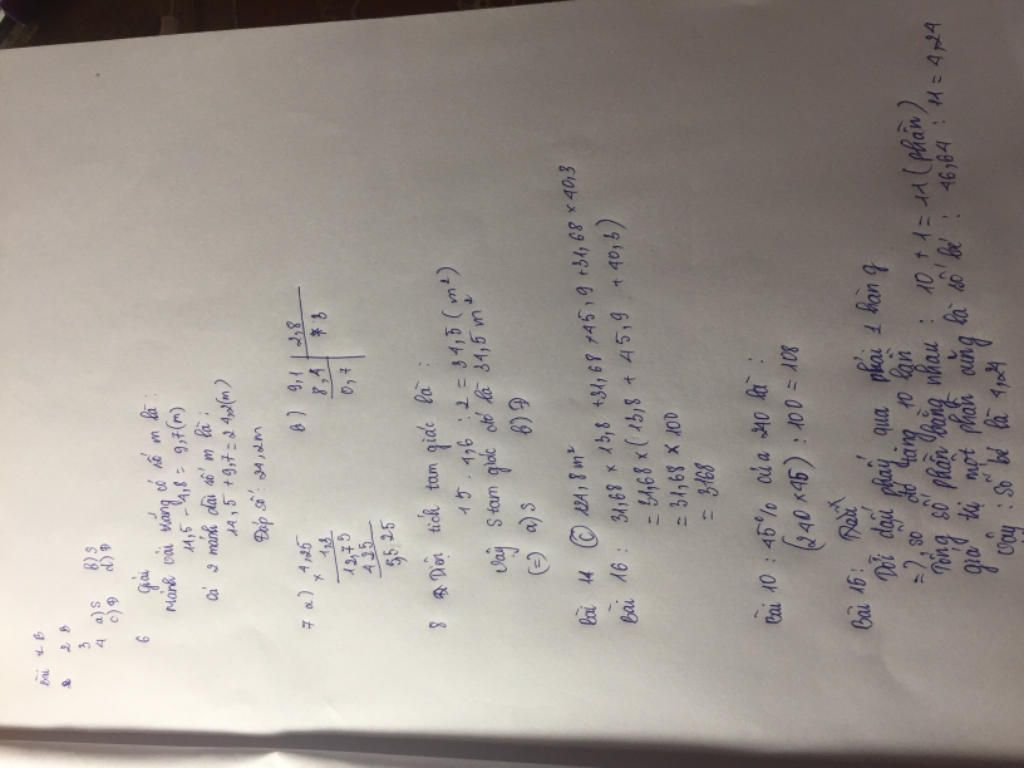 Bài 1 B
2 B
3
4 a) S B) S
c) Đ d) Đ
6 giải
mảnh vải trắng có số m là :
14,5 - 4,8 = 9,7 (m)
cả 2 mảnh dài số m là :
14,5 + 9,7 = 24,2 (m)
Đáp số : 24,2 m
7 a) 4,25
× 1,3
12,75
425
5,525
B) 9,1 2,8
8,4 3
0,7
8 Diện tích tam giác là :
15 . 4,6 : 2 = 34,5 (m²)
Vậy S tam giác đó là 34,5 m²
(=) a) S b) Đ
Bài 14 (C) 124,8 m²
Bài 16 : 31,68 × 13,8 + 31,68 × 45,9 + 31,68 × 40,3
= 31,68 × (13,8 + 45,9 + 40,3)
= 31,68 × 100
= 3168
Bài 10 : 45% của 240 là :
(240 × 45) : 100 = 108
Bài 15 : Giải
Dời dấu phẩy qua phải 1 hàng
=), số đó tăng 10 lần
Tổng số phần bằng nhau : 10 + 1 = 11 (phần)
giá trị một phần cũng là số bé : 46,64 : 11 = 4,24
Vậy : Số bé là 4,24